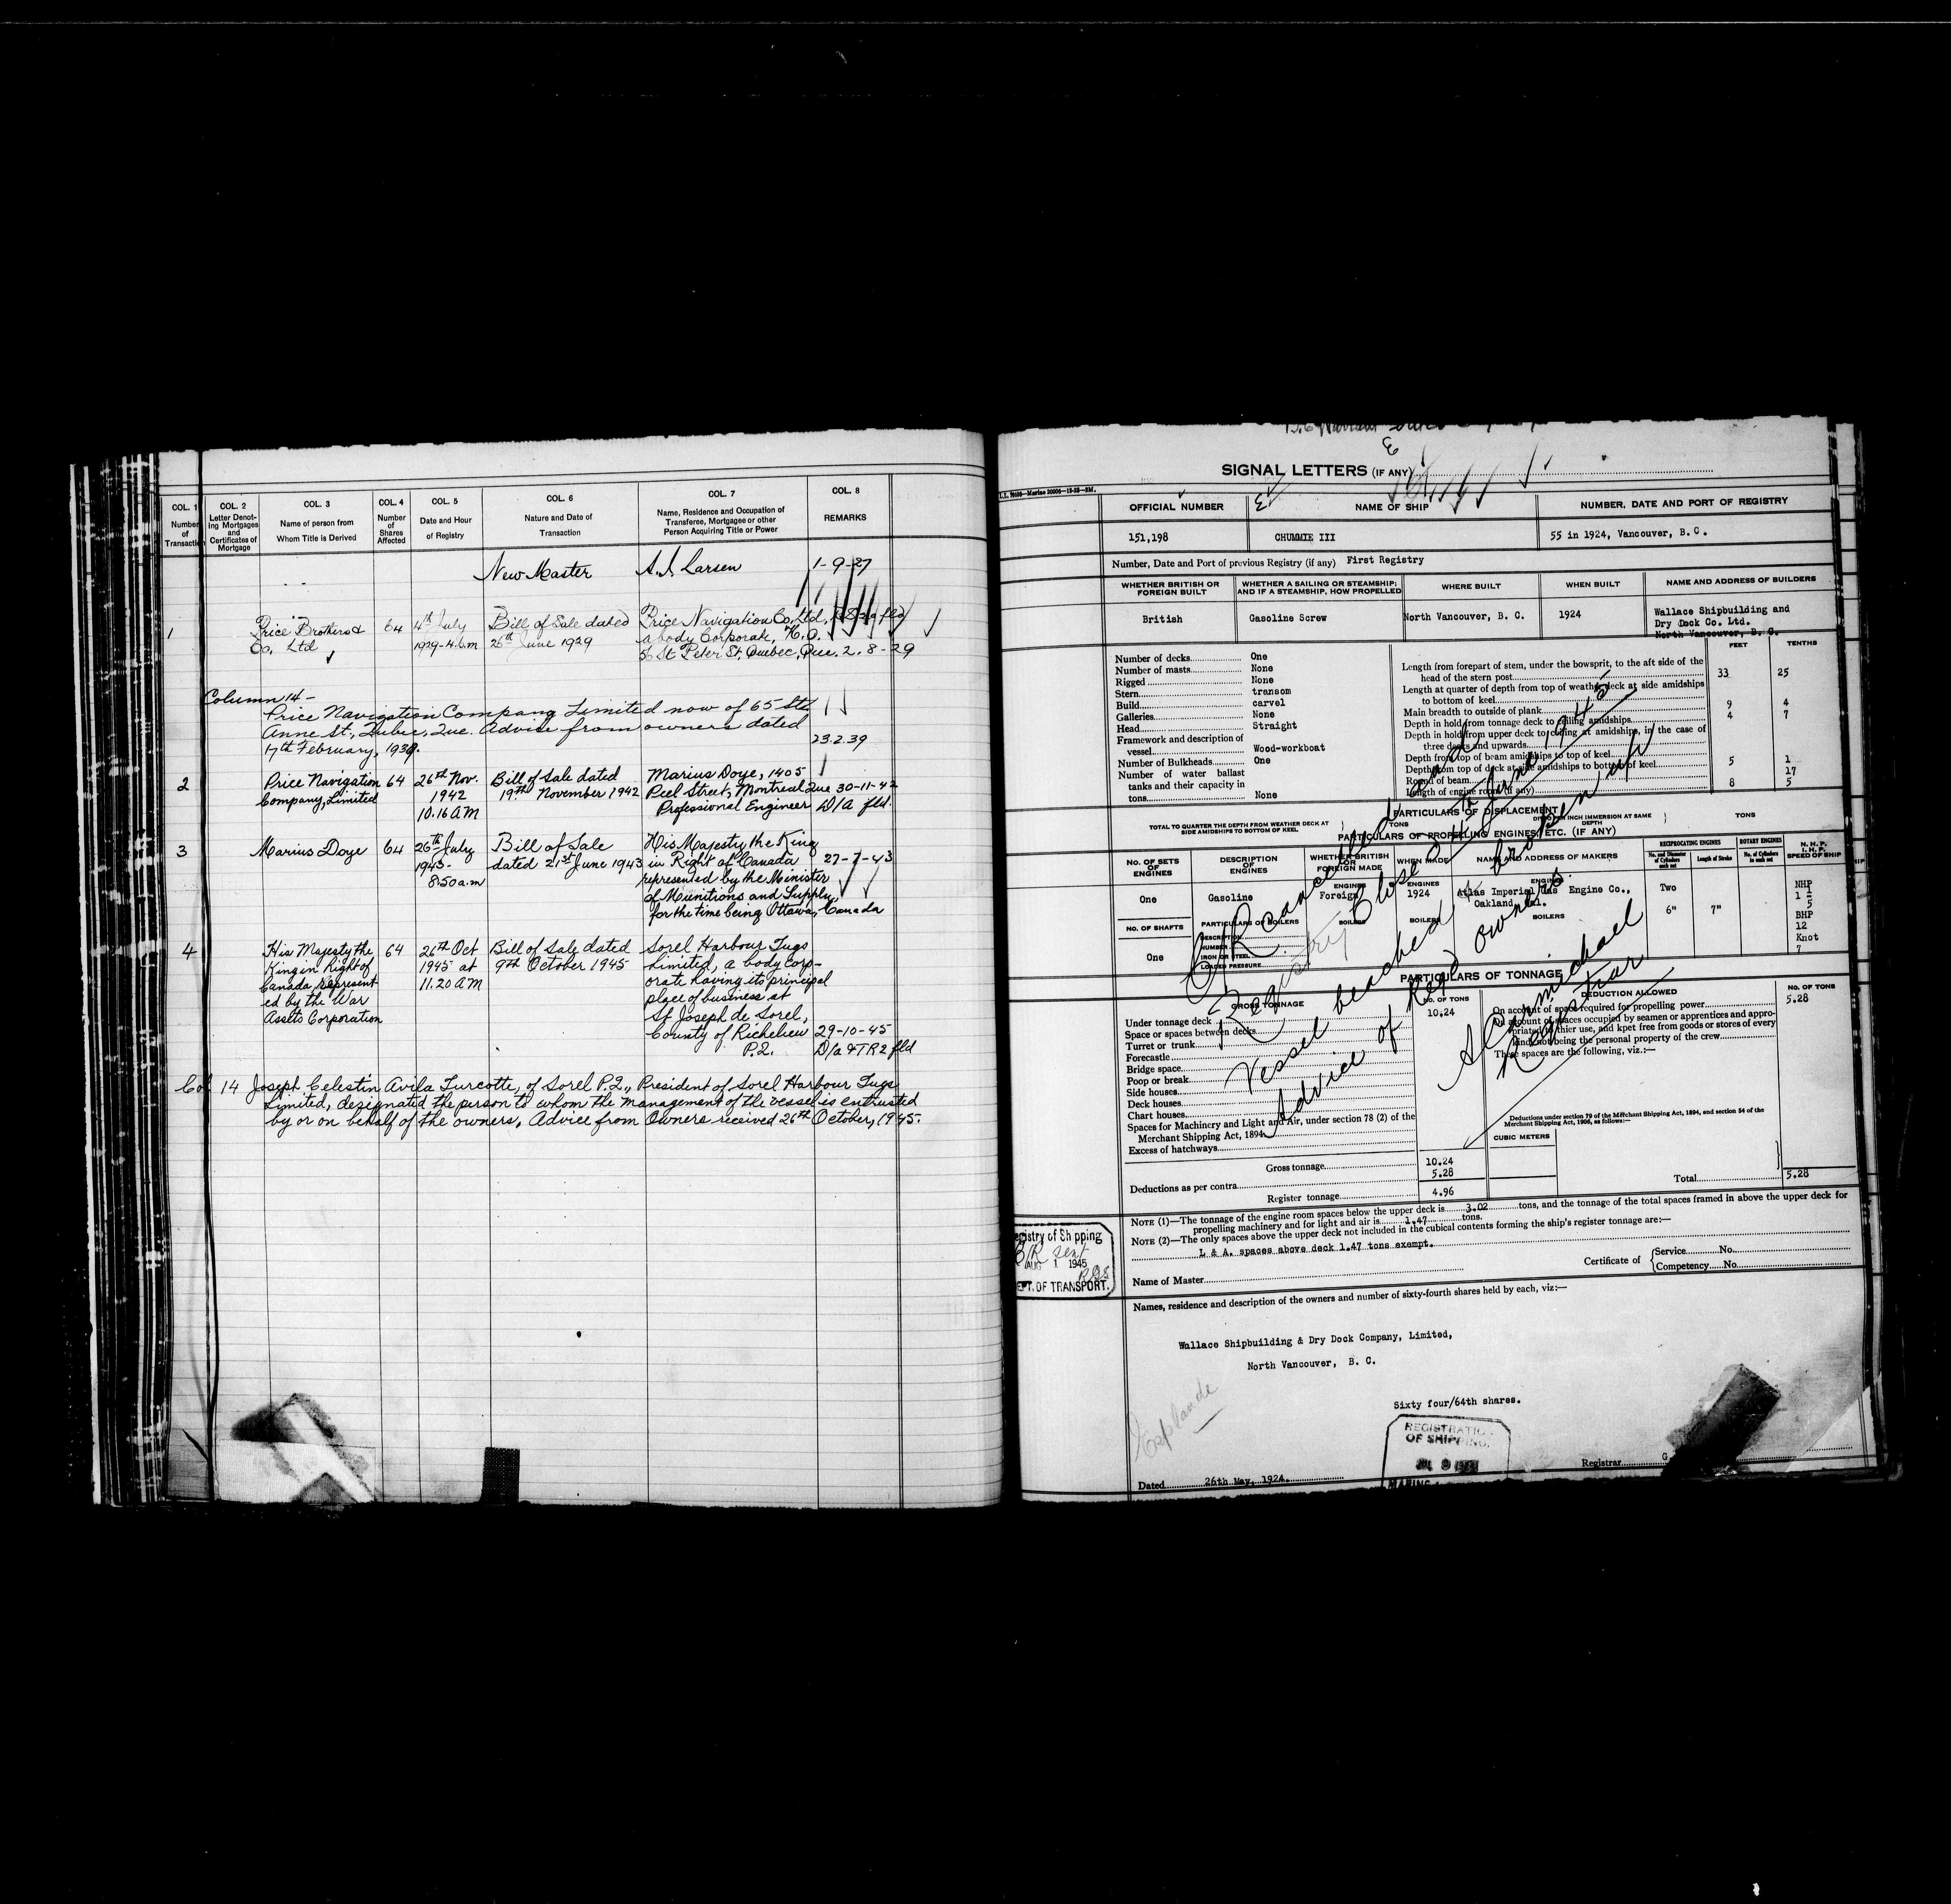 COL. 1
Number of Transaction
COL. 2
Letter Denoting Mortgages and Certificates of Mortgage
COL. 3
Name of person from Whom Title is Derived
COL. 4
Number of Shares Affected
COL. 5
Date and Hour of Registry
COL. 6
Nature and Date of Transaction
COL. 7
Name, Residence and Occupation of Transferee, Mortgagee or other Person Acquiring Title or Power
COL. 8
REMARKS
New Master A. Larsen 1-9-27
1
Price Brothers & Co. Ltd
64
4th July 1929-4 p.m
Bill of Sale dated 26th June 1929
Price Navigation Co. Ltd,
a body Corporate, H.O.
56 St Peter St, Quebec, Que. 2-8-29
Column 14 -
Price Navigation Company Limited now of 65 Ste
Anne St., Quebec, Que. Advise from owners dated
17th February, 1939. 23.2.39
2
Price Navigation Company, Limited
64
26th Nov. 1942 10.16 AM
Bill of Sale dated 19th November 1942
Marius Doye, 1405
Peel Street, Montreal Que 30-11-42
Professional Engineer D/A fld.
3
Marius Doye
64
26th July 1943- 8.50 a.m
Bill of Sale dated 21st June 1943
His Majesty the King
in Right of Canada 27-7-43
represented by the Minister
of Munitions and Supply,
for the time being Ottawa, Canada
4
His Majesty the
King in right of
Canada represent-
ed by the War
Assets Corporation
64
26th Oct 1945 at 11.20 AM
Bill of Sale dated 9th October 1945
Sorel Harbour Tugs
Limited, a body corp-
orate having its principal
place of business at
St Joseph de Sorel,
County of Richelieu 29-10-45
P.Q. D/a & TR2 fld
Col 14 Joseph Celestin Avila Turcotte, of Sorel P.Q., President of Sorel Harbour Tugs
Limited, designated the person to whom the management of the vessel is entrusted
by or on behalf of the owners, Advice from Owners received 26th October, 1945.
SIGNAL LETTERS (IF ANY)
OFFICIAL NUMBER
NAME OF SHIP
NUMBER, DATE AND PORT OF REGISTRY
151,198
CHUMMIE III
55 in 1924, Vancouver, B.C.
Number, Date and Port of previous Registry (if any) First Registry
WHETHER BRITISH OR FOREIGN BUILT
WHETHER A SAILING OR STEAMSHIP; AND IF A STEAMSHIP, HOW PROPELLED
WHERE BUILT
WHEN BUILT
NAME AND ADDRESS OF BUILDERS
British
Gasoline Screw
North Vancouver, B. C.
1924
Wallace Shipbuilding and
Dry Dock Co. Ltd.
North Vancouver, B. C.
FEET TENTHS
Number of decks One
Number of masts None
Rigged None
Stern transom
Build carvel
Galleries None
Head Straight
Framework and description of vessel Wood-workboat
Number of Bulkheads One
Number of water ballast tanks and their capacity in tons None
Length from forepart of stem, under the bowsprit, to the aft side of the head of the stern post 33 25
Length at quarter of depth from top of weather deck at side amidships to bottom of keel
Main breadth to outside of plank 9 4
Depth in hold from tonnage deck to ceiling amidships 4 7
Depth in hold from upper deck to ceiling at amidships, in the case of three decks and upwards
Depth from top of beam amidships to top of keel 5 1
Depth from top of deck at side amidships to bottom of keel
Round of beam 17
Length of engine room (if any) 8 5
PARTICULARS OF DISPLACEMENT
TOTAL TO QUARTER THE DEPTH FROM WEATHER DECK AT SIDE AMIDSHIPS TO BOTTOM OF KEEL
TONS
DITTO PER INCH IMMERSION AT SAME DEPTH
TONS
PARTICULARS OF PROPELLING ENGINES, ETC. (IF ANY)
NO. OF SETS OF ENGINES
DESCRIPTION OF ENGINES
WHETHER BRITISH OR FOREIGN MADE
WHEN MADE
NAME AND ADDRESS OF MAKERS
RECIPROCATING ENGINES
No. and Diameter of Cylinders each set
Length of Stroke
ROTARY ENGINES
No. of Cylinders in each set
N. H. P.
I. H. P.
SPEED OF SHIP
One
Gasoline
ENGINES
Foreign
ENGINES
1924
ENGINES
Atlas Imperial Gas Engine Co.,
Oakland, Cal.
Two
6" 7"
NHP
1 1/5
BHP
12
Knot
7
NO. OF SHAFTS
One
PARTICULARS OF BOILERS
DESCRIPTION
NUMBER
IRON OR STEEL
LOADED PRESSURE
BOILERS
BOILERS
BOILERS
PARTICULARS OF TONNAGE
GROSS TONNAGE
NO. OF TONS
DEDUCTION ALLOWED
NO. OF TONS
Under tonnage deck 10.24
Space or spaces between decks
Turret or trunk
Forecastle
Bridge space
Poop or break
Side houses
Deck houses
Chart houses
Spaces for Machinery and Light and Air, under section 78 (2) of the Merchant Shipping Act, 1894
Excess of hatchways
On account of space required for propelling power 5.28
On account of spaces occupied by seamen or apprentices and appropriated to thier use, and kpet free from goods or stores of every kind, not being the personal property of the crew
These spaces are the following, viz.:—
Deductions under section 79 of the Merchant Shipping Act, 1894, and section 54 of the Merchant Shipping Act, 1906, as follows:—
CUBIC METERS
Gross tonnage 10.24
Deductions as per contra 5.28
Register tonnage 4.96
Total 5.28
Cancelled and
Registry Closed 4th June 1945
Vessel beached & broken up
Advice of Reg'd owners.
A Carmichael
Registrar
NOTE (1)—The tonnage of the engine room spaces below the upper deck is 3.02 tons, and the tonnage of the total spaces framed in above the upper deck for
propelling machinery and for light and air is 1.47 tons.
NOTE (2)—The only spaces above the upper deck not included in the cubical contents forming the ship's register tonnage are:—
L & A. spaces above deck 1.47 tons exempt.
Name of Master
Certificate of Service No.
Competency No.
Registry of Shipping
B/R sent
AUG 1 1945
DEPT. OF TRANSPORT.
Names, residence and description of the owners and number of sixty-fourth shares held by each, viz:—
Wallace Shipbuilding & Dry Dock Company, Limited,
North Vancouver, B. C.
Sixty four/64th shares.
REGISTRATION
OF SHIPPING.
Dated 26th May, 1924.
Registrar